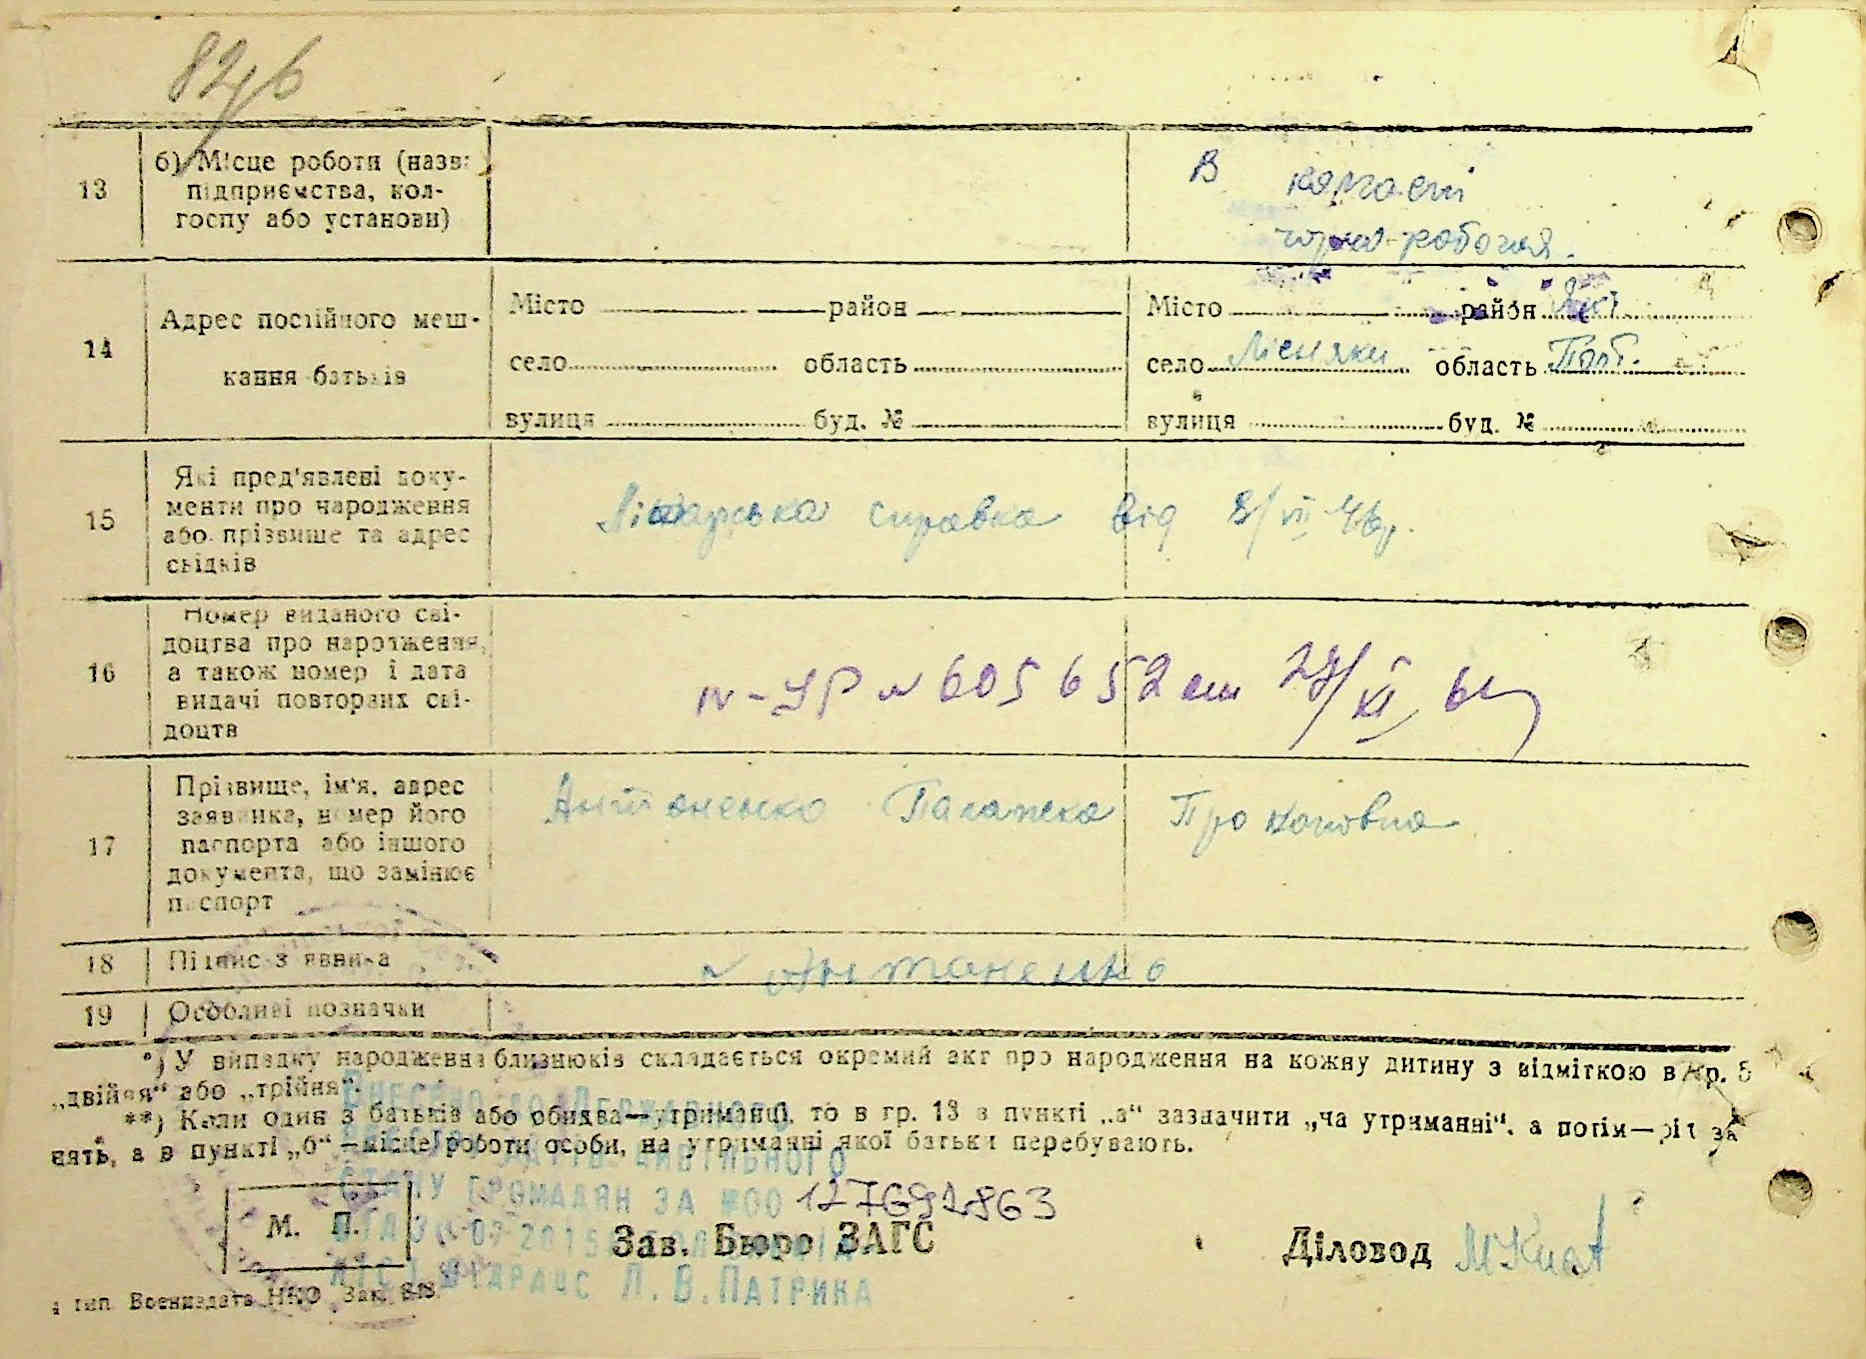 13
б) Місце роботи (назва
підприємства, кол-
госпу або установи)
В колгоспі
чорно-робочая.
14
Адрес постійного меш-
кання батьків
Місто район
село область
вулиця буд. №
Місто район
село Лісняки область Полт.
вулиця буд. №
15
Які пред'явлені доку-
менти про народження
або прізвище та адрес
свідків
Лікарська справка від 8/VII 46р.
16
Номер виданого сві-
доцтва про народження,
а також номер і дата
видачі повторних сві-
доцтв
IV-УР № 605652 от 27/XI
17
Прізвище, ім'я, адрес
заявника, номер його
паспорта або іншого
документа, що замінює
паспорт
Антоненко Палажка Прокоповна
18
Підпис заявника
Антоненко
19
Особливі позначки
*) У випадку народження близнюків складається окремий акт про народження на кожну дитину з відміткою в гр. 5
„двійня“ або „трійня“.
**) Коли один з батьків або обидва—утриманці, то в гр. 13 в пункті „а“ зазначити „на утриманні“, а потім—рід за
нять, а в пункті „б“—місце роботи особи, на утриманні якої батьки перебувають.
ВНЕСЕНО ДО ДЕРЖАВНОГО
АКТІВ ЦИВІЛЬНОГО
СТАНУ ГРОМАДЯН ЗА №00 127692863
М. П.
Зав. Бюро ЗАГС
Діловод
Л.В.ПАТРИКА
тип. Воениздата НКО Зак.